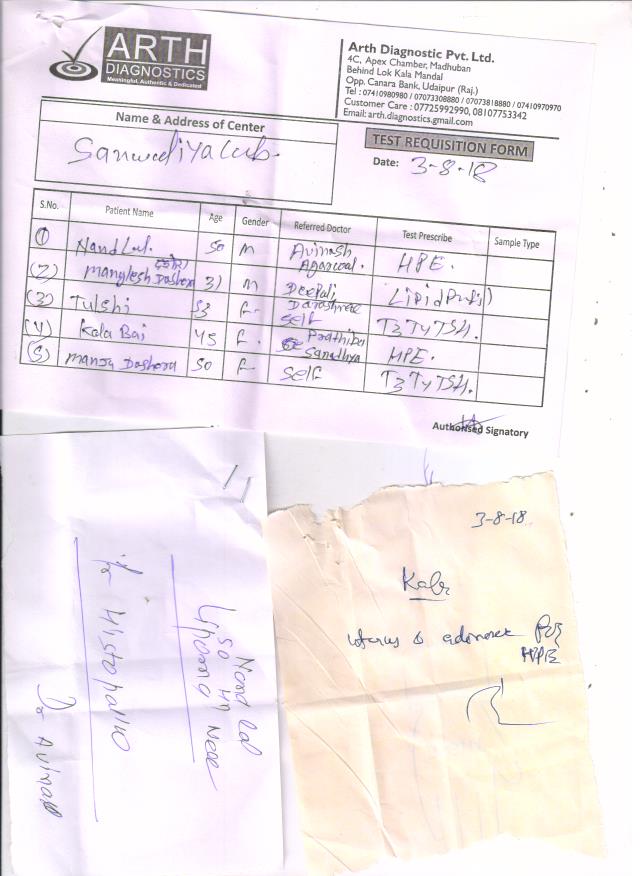 ARTH
DIAGNOSTICS
Meaningful, Authentic & Dedicated
Arth Diagnostic Pvt. Ltd.
4C, Apex Chamber, Madhuban
Behind Lok Kala Mandal
Opp. Canara Bank, Udaipur (Raj.)
Tel : 07410980980 / 07073308880 / 07073818880 / 07410970970
Customer Care : 07725992990, 08107753342
Email: arth.diagnostics.gmail.com
Name & Address of Center
Sanwaliya Lab.
TEST REQUISITION FORM
Date: 3-8-18
S.No. Patient Name Age Gender Referred Doctor Test Prescribe Sample Type
(1) Nand Lal. 50 M Avinash Agarwal. HPE.
(2) Manglesh Dashora 31 M Deepali Lipid
(3) Tulshi 53 F. self T3 T4 TSH.
(4) Kala Bai 45 F. Prathiba Sanadhya HPE.
(5) Manju Dashora 50 F. self T3 T4 TSH.
Authorised Signatory
Nand Lal
50 M
Lipoma
for Histopatho
Dr Avinash
3-8-18
Kala
uterus & adnexae for
HPE